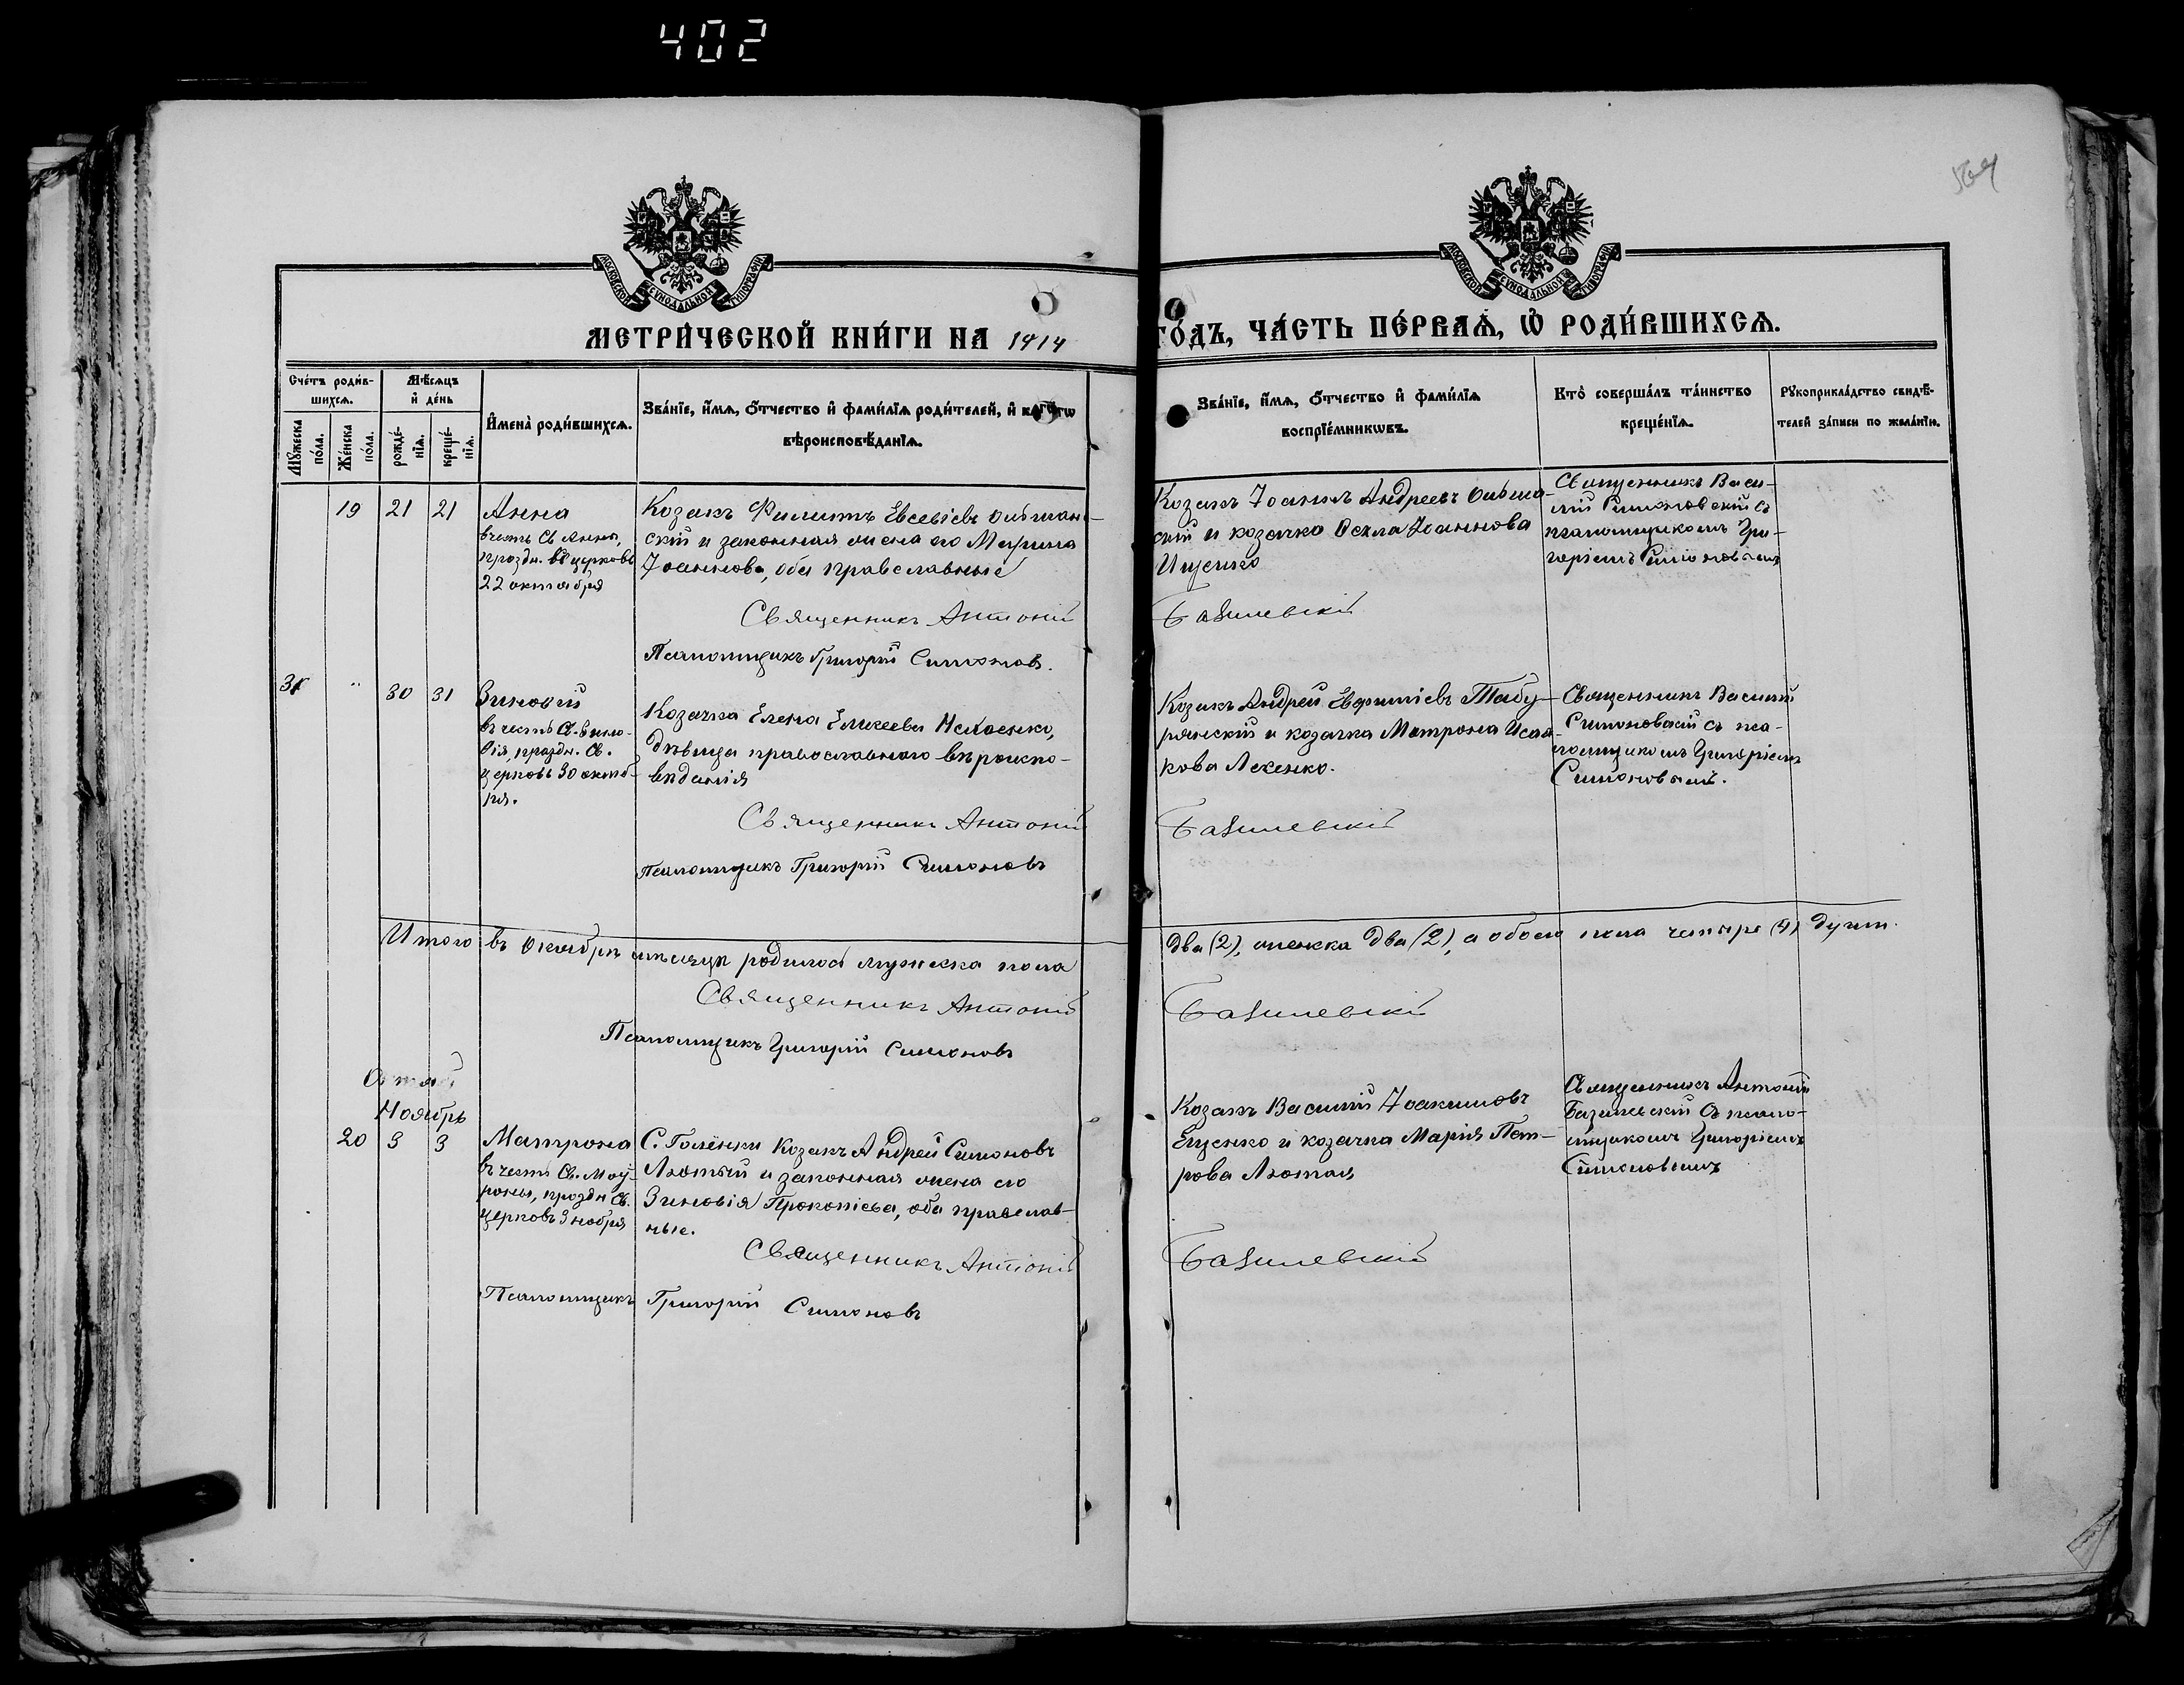 402
564
МОСКОВСКОЙ СѴНОДАЛЬНОЙ ТИПОГРАФІИ
МОСКОВСКОЙ СѴНОДАЛЬНОЙ ТИПОГРАФІИ
МЕТРИ́ЧЕСКОЙ КНИ́ГИ НА 1914
ГО́ДЪ, ЧА́СТЬ ПЕ́РВАѦ, Ѡ҆ РОДИ́ВШИХСѦ.
Сче́тъ роди́в-
шихсѧ.
Мѣ́сѧцъ
и҆ де́нь
Мꙋ́жеска
по́ла.
Же́нска
по́ла.
рожде́-
нїѧ.
креще́-
нїѧ.
И҆мена̀ роди́вшихсѧ.
Зва́нїе, и҆́мѧ, ѻ҆́тчество и҆ фами́лїѧ роди́телей, и҆ како́гѡ
вѣроисповѣ́данїѧ.
Зва́нїе, и҆́мѧ, ѻ҆́тчество и҆ фами́лїѧ
воспрїе́мникѡвъ.
Кто̀ соверша́лъ та́инство
креще́нїѧ.
Рꙋкоприкла́дство свидѣ́-
телей за́писи по жела́нїю.
19 21 21 Анна
въ честь Св Анны,
праздн. въ церковь
22 октября
Козакъ Филиппъ Евсевіевъ
скій и законная жена его Марина
Іоаннова, оба православные
Священникъ Антоній
Псаломщикъ Григорій Симоновъ.
Козакъ Іоаннъ Андреевъ
скій и козачка Іоаннова
Ищенко
Базилевскій
Священникъ Васи-
лій Симоновскій съ
псаломщикомъ Гри-
горіемъ Симоновымъ
30 31 Зиновій
въ честь Св. Зино-
вія, праздн. Св.
церковь 30 октяб-
ря.
Козачка Елена Елисеева
дѣвица православнаго вѣроиспо-
вѣданія
Священникъ Антоній
Псаломщикъ Григорій Симоновъ
Козакъ Андрей Евфиміевъ Табу-
рянскій и козачка Матрона Исаа-
кова Лехенко.
Базилевскій
Священникъ Василій
Симоновскій съ пса-
ломщикомъ Григоріемъ
Симоновымъ.
Итого въ Октябрѣ мѣсяцѣ родилось мужеска пола
два (2), женска два (2), а обоего пола четыре (4) души.
Священникъ Антоній
Базилевскій
Псаломщикъ Григорій Симоновъ
Ноябрь
20 3 3 Матрона
въ честь Св. Мат-
роны, праздн Св.
церковь 3 ноября
С. Голёнки Козакъ Андрей Симоновъ
Лютый и законная жена его
Зиновія Прокопіева, оба православ-
ные.
Священникъ Антоній
Псаломщикъ Григорій Симоновъ
Козакъ Василій Іоакимовъ
Ещенко и козачка Марія Пет-
рова Лютая
Базилевскій
Священникъ Антоній
Базилевскій съ псало-
мщикомъ Григоріемъ
Симоновымъ